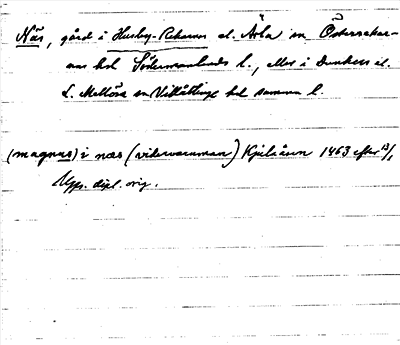 Näs, gård i Husby-Rekarne el. Ärla sn Österrekar-
ne hd Södermanlands l., eller i Dunkers el.
L. Mellösa sn Villåttinge hd samma l.
(magnus) i næs (vidervaruman) Kjulaåsen 1463 efter 13/1
Upps. dipl. orig.